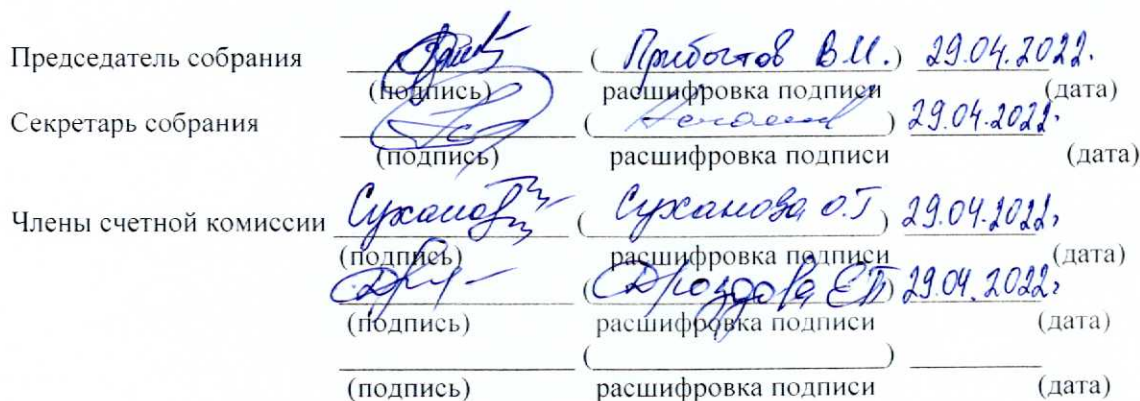 Председатель собрания ( Прибостов В.И. ) 29.04.2022г.
(подпись) расшифровка подписи (дата)
Секретарь собрания ( ) 29.04.2022г.
(подпись) расшифровка подписи (дата)
Члены счетной комиссии Суханова ( Суханова О.Г ) 29.04.2022г.
(подпись) расшифровка подписи (дата)
( Дроздова Е.П ) 29.04.2022г
(подпись) расшифровка подписи (дата)
( )
(подпись) расшифровка подписи (дата)